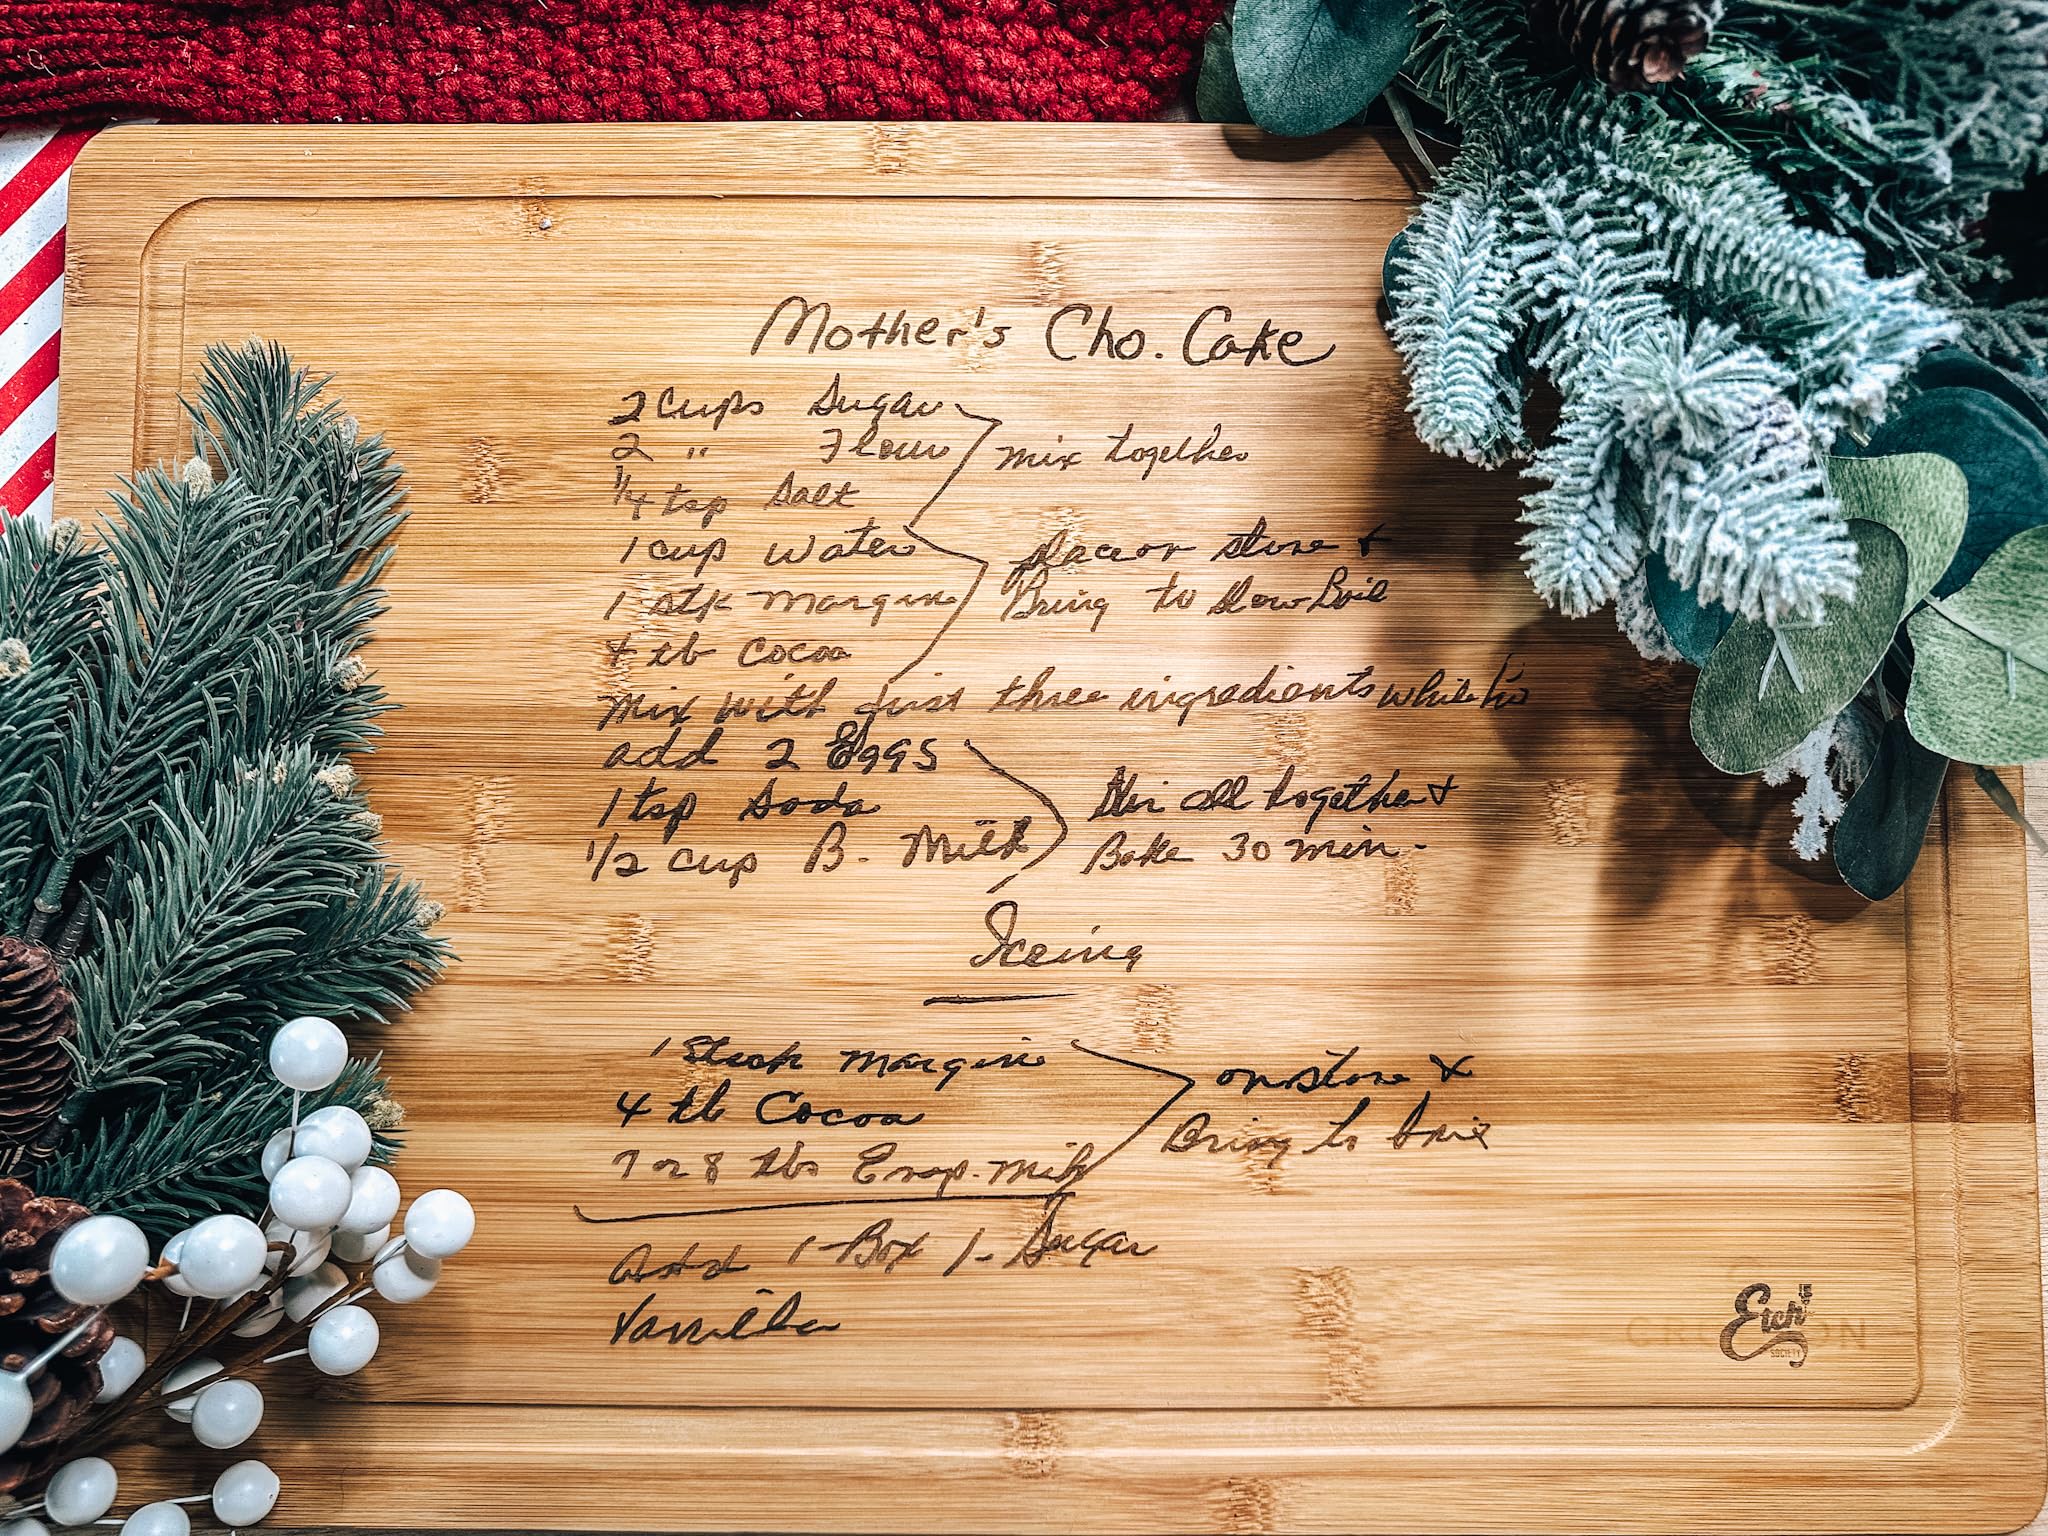 Mother's Cho. Cake
2 Cups Sugar
2 " Flour
1/4 tsp Salt
mix together
1 cup water
1 stk Margine
4 tb Cocoa
place on stove +
Bring to slow Boil
mix with first three ingredients while
add 2 Eggs
1 tsp Soda
1/2 cup B. Milk
all together +
Bake 30 min.
Iceing
1 Stick Margine
4 tb Cocoa
7 or 8 tbs Evap. Milk
on stove &
Bring to
add 1-Box Sugar
Vanilla
Etch
SOCIETY